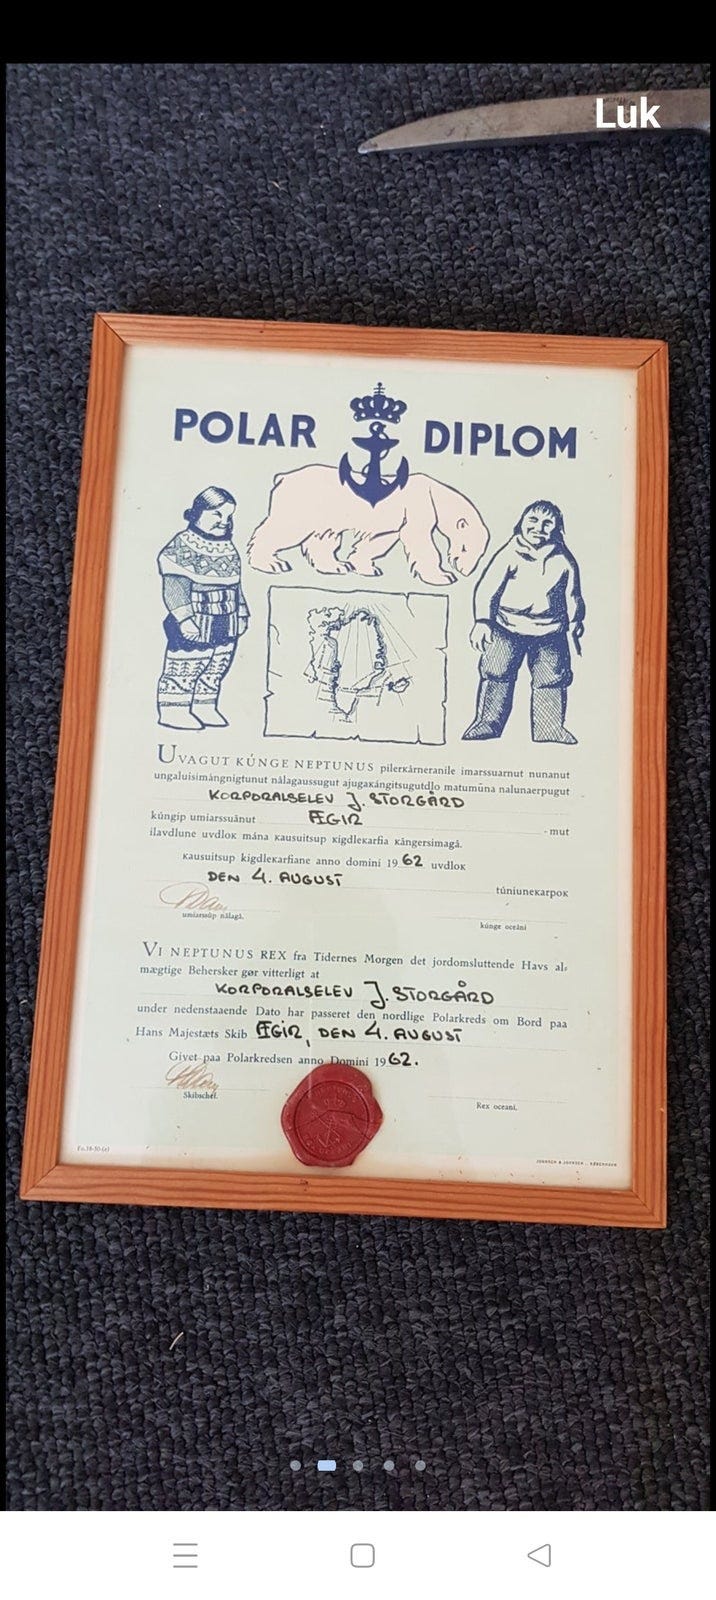 Luk
POLAR DIPLOM
UVAGUT KÚNGE NEPTUNUS pilerĸárneranile imarssuarnut nunanut
ungaluisimángnigtunut nâlagaussugut ajugaĸángitsugutdlo matumûna nalunaerpugut
KORPORALSELEV J. STORGÅRD
kúngip umiarssuânut ÆGIR -mut
ilavdlune uvdloĸ mána ĸausuitsup kigdleĸarfia ĸángersimagâ.
ĸausuitsup kigdleĸarfiane anno domini 1962 uvdloĸ
DEN 4. AUGUST túniuneĸarpoĸ
umiarssûp nâlagâ.
kúnge oceáni
VI NEPTUNUS REX fra Tidernes Morgen det jordomsluttende Havs al=
mægtige Behersker gør vitterligt at
KORPORALSELEV J. STORGÅRD
under nedenstaaende Dato har passeret den nordlige Polarkreds om Bord paa
Hans Majestæts Skib ÆGIR, DEN 4. AUGUST
Givet paa Polarkredsen anno Domini 1962.
Skibschef.
Rex oceani.
JOHNSEN & JOHNSEN . KØBENHAVN